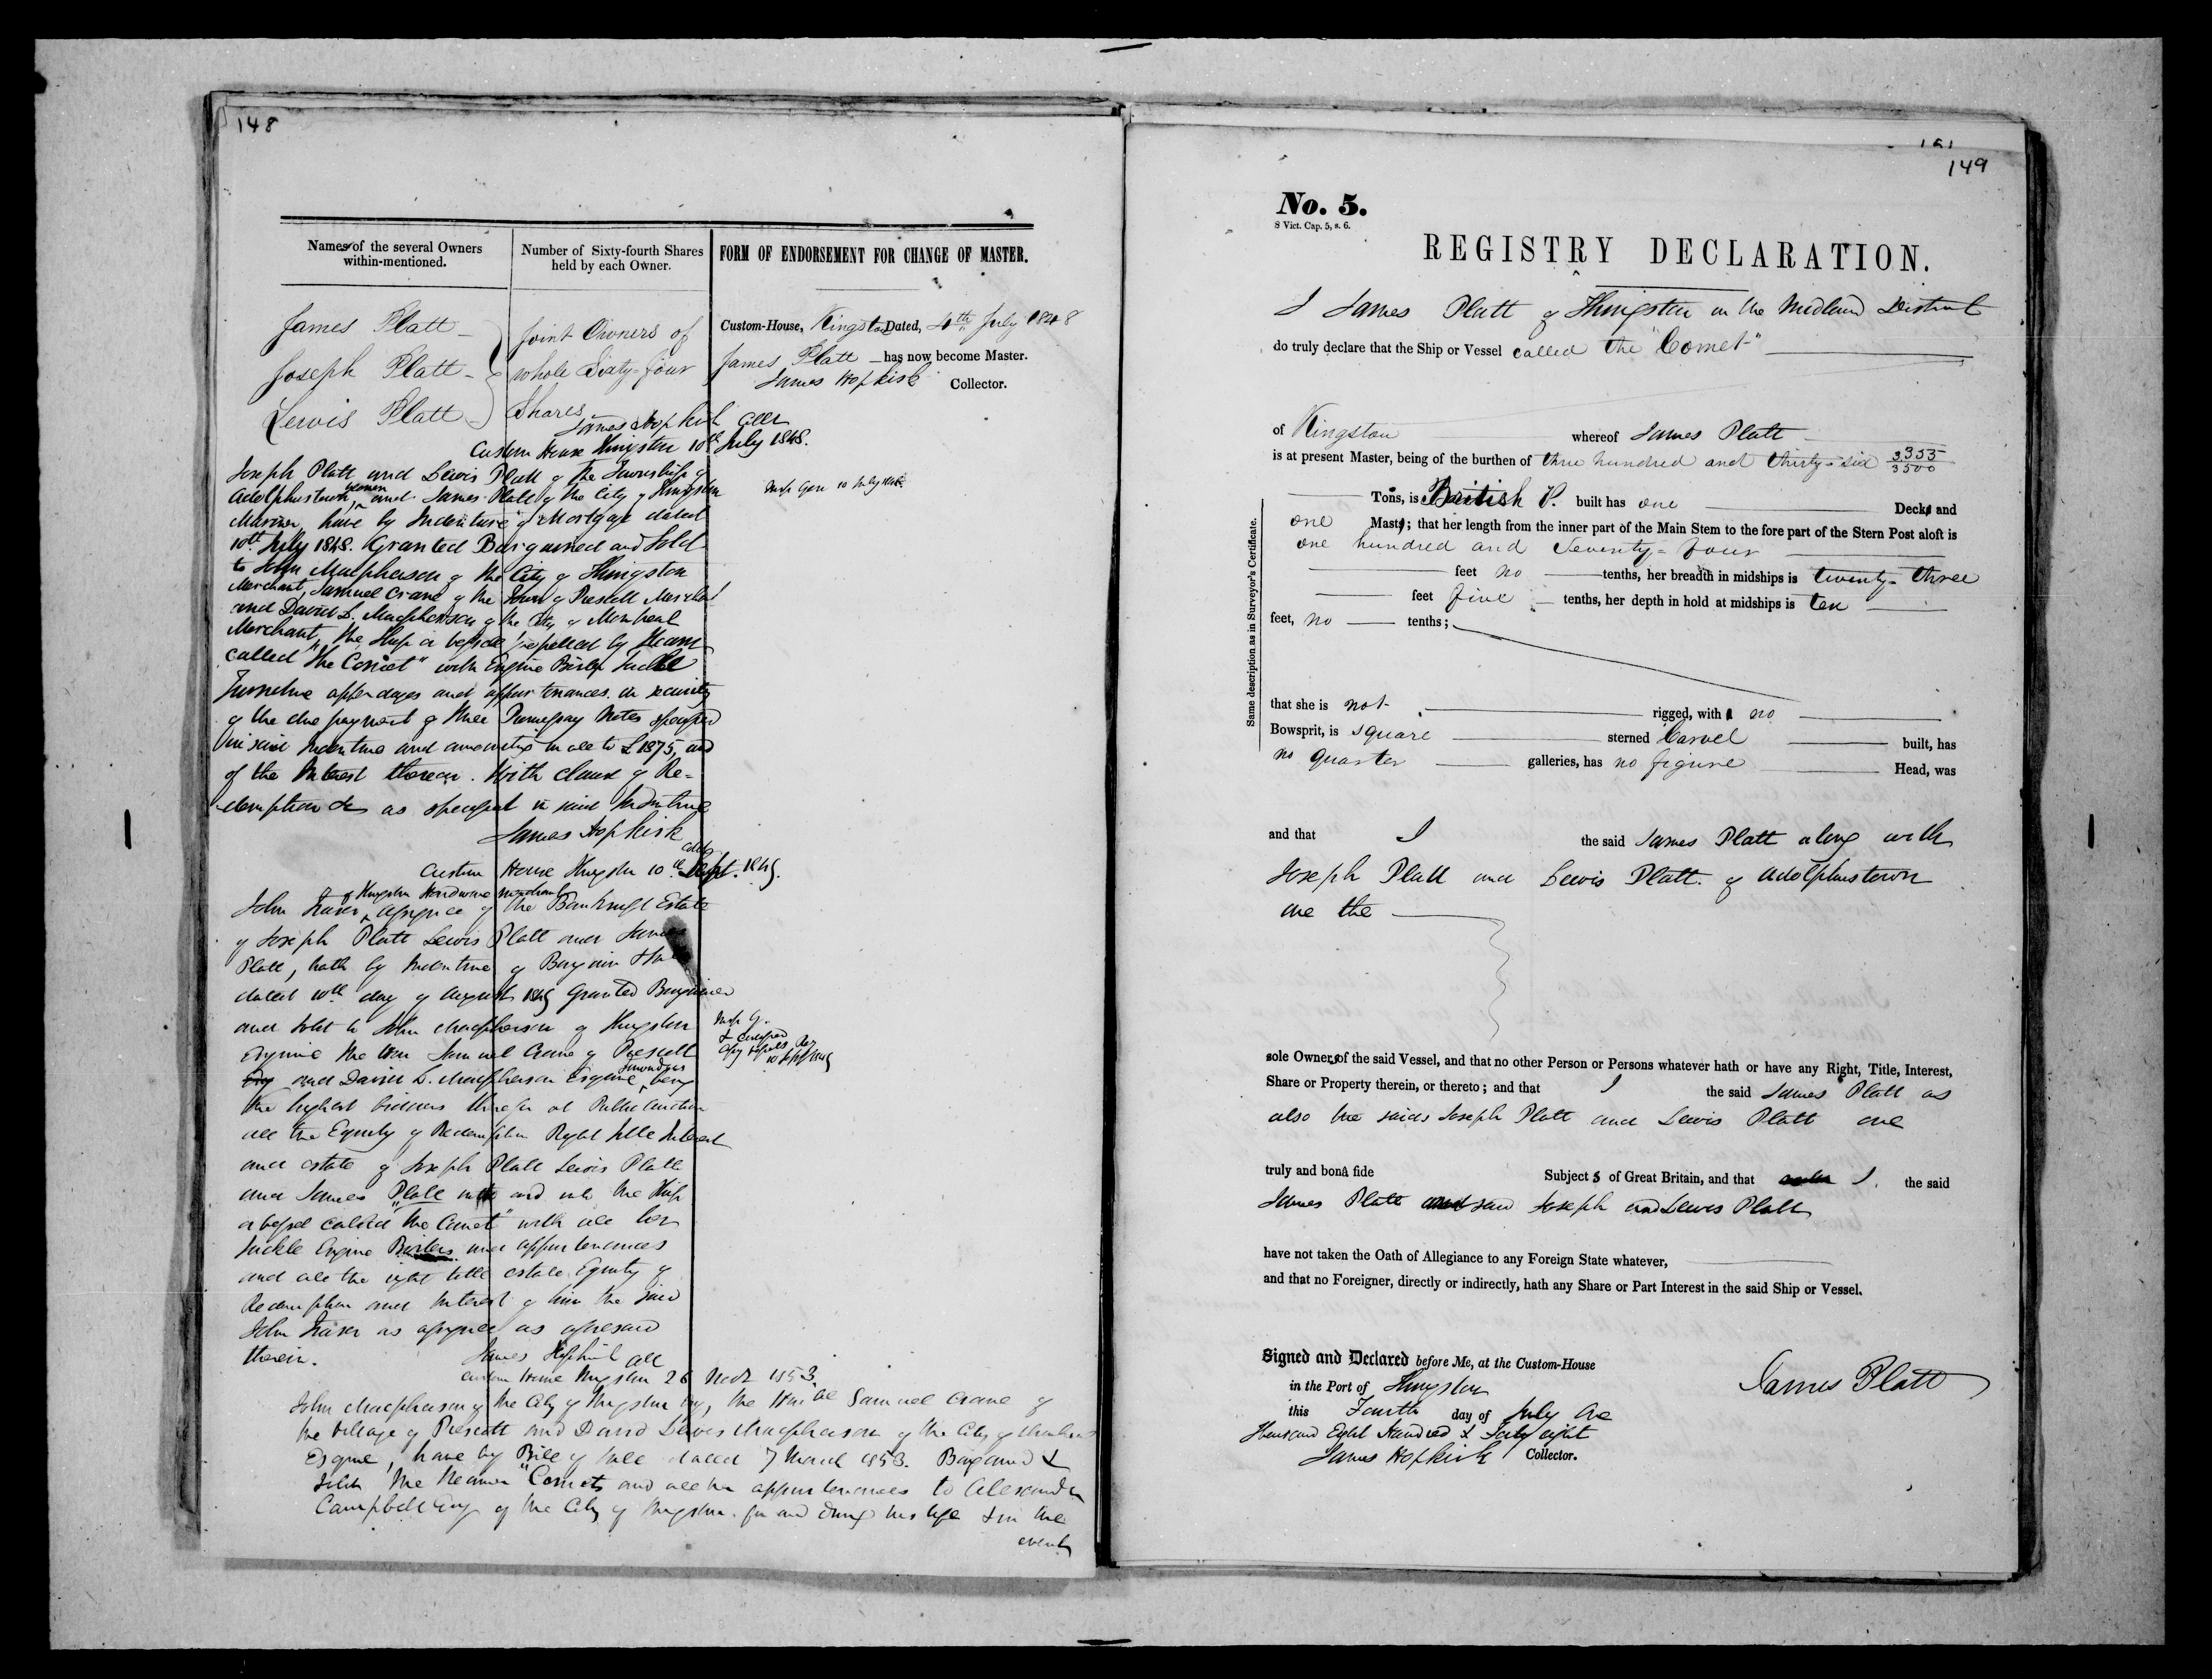 148
Names of the several Owners
within-mentioned.
Number of Sixty-fourth Shares
held by each Owner.
FORM OF ENDORSEMENT FOR CHANGE OF MASTER.
James Platt
Joseph Platt
Lewis Platt
Joint Owners of
whole Sixty-four
Shares
Custom-House, Kingston Dated, 4th July 1848
James Platt has now become Master.
James Hopkirk Collector.
James Hopkirk Collr
Custom House Kingston 10th July 1848.
Joseph Platt and Lewis Platt of the Township of
Adolphustown yeomen and James Platt of the City of Kingston
Mariner, have by Indenture of Mortgage dated
10th July 1848. Granted Bargained and Sold
to John Macpherson of the City of Kingston
Merchant, Samuel Crane of the Town of Prescott Merchant
and David L. Macpherson of the City of Montreal
Merchant, the Ship or vessel propelled by Steam
called "the Comet" with Engine Boiler Tackle
Furniture appendages and appurtenances in security
of the due payment of three Promissory Notes specified
in said Indenture and amounting in all to £1875, and
of the Interest thereon. With clause of Re-
demption &c as specified in said Indenture
James Hopkirk
Collr
Custom House Kingston 10th Sept. 1849.
John Fraser of Kingston Hardware merchant Assignee of the Bankrupt Estate
of Joseph Platt Lewis Platt and James
Platt, hath by Indenture of Bargain & Sale
dated 10th day of August 1849 Granted Bargained
and Sold to John Macpherson of Kingston
Esquire the Hon Samuel Crane of Prescott
and David L. Macpherson Esquire, being
the highest bidders therefor at Public Auction
all the Equity of Redemption Right title Interest
and estate of Joseph Platt Lewis Platt
and James Platt into and in the Ship
or vessel called "the Comet" with all her
tackle Engine Boilers and appurtenances
and all the right title estate Equity of
Redemption and Interest of him the said
John Fraser as assignee as aforesaid
therein.
James Hopkirk Coll
Custom House Kingston 26 March 1853.
John Macpherson of the City of Kingston Esq, the Honble Samuel Crane of
the Village of Prescott and David Lewis Macpherson of the City of
Esquire, have by Bill of Sale dated 7 March 1853. Bargained &
Sold the Steamer "Comet" and all her appurtenances to Alexander
Campbell Esq of the City of Kingston for and during his life & in the
event
149
No. 5.
8 Vict. Cap. 5, s. 6.
REGISTRY DECLARATION.
I James Platt of Kingston in the Midland District
do truly declare that the Ship or Vessel called the "Comet"
of Kingston whereof James Platt
is at present Master, being of the burthen of three hundred and thirty-six 3355/3500
Tons, is British P. built has one Decks and
one Masts; that her length from the inner part of the Main Stem to the fore part of the Stern Post aloft is
one hundred and Seventy-four
feet no tenths, her breadth in midships is twenty-three
feet five tenths, her depth in hold at midships is ten
feet, no tenths;
Same description as in Surveyor's Certificate.
that she is not rigged, with a no
Bowsprit, is square sterned Carvel built, has
no quarter galleries, has no figure Head, was
and that I the said James Platt along with
Joseph Platt and Lewis Platt of Adolphustown
are the
sole Owners of the said Vessel, and that no other Person or Persons whatever hath or have any Right, Title, Interest,
Share or Property therein, or thereto; and that I the said James Platt as
also the saids Joseph Platt and Lewis Platt are
truly and bonâ fide Subjects of Great Britain, and that I the said
James Platt and said Joseph and Lewis Platt
have not taken the Oath of Allegiance to any Foreign State whatever,
and that no Foreigner, directly or indirectly, hath any Share or Part Interest in the said Ship or Vessel.
Signed and Declared before Me, at the Custom-House
in the Port of Kingston
this Fourth day of July One
thousand Eight Hundred & Forty eight
James Hopkirk Collector.
James Platt